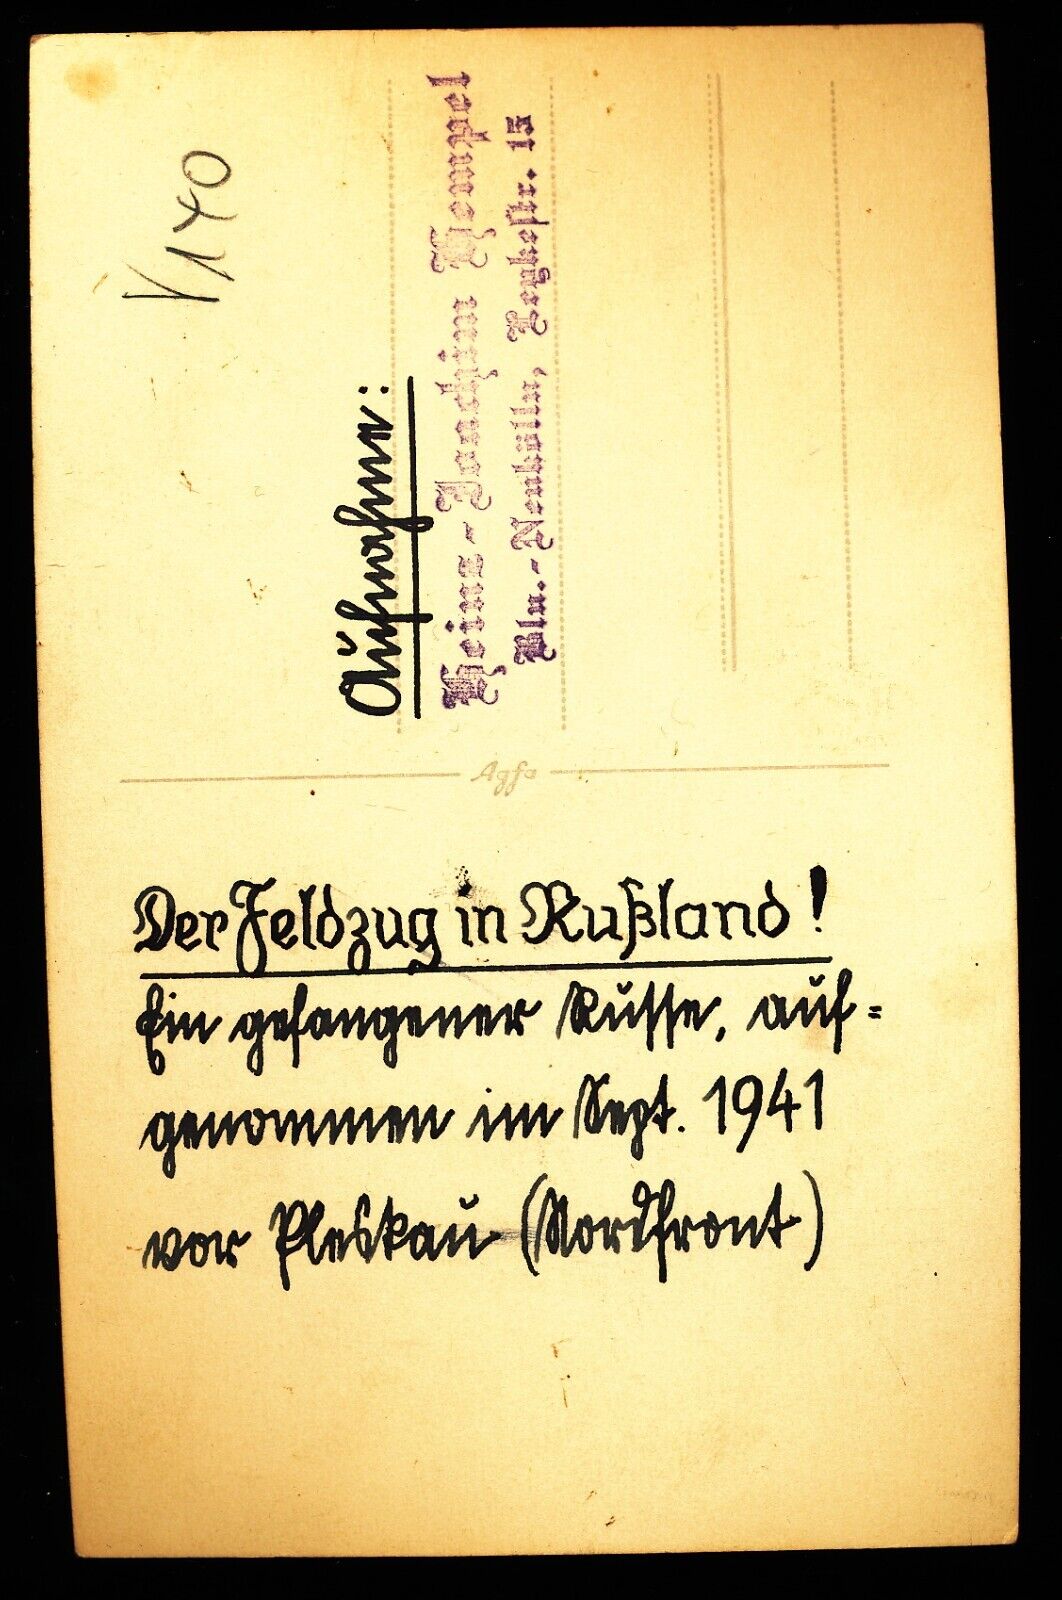 V140
Aufnahme:
Heinz-Joachim Hempel
Bln.-Neukölln, Leykestr. 15
Agfa
Der Feldzug in Rußland!
Ein gefangener Russe, auf=
genommen im Sept. 1941
vor Pleskau (Nordfront)